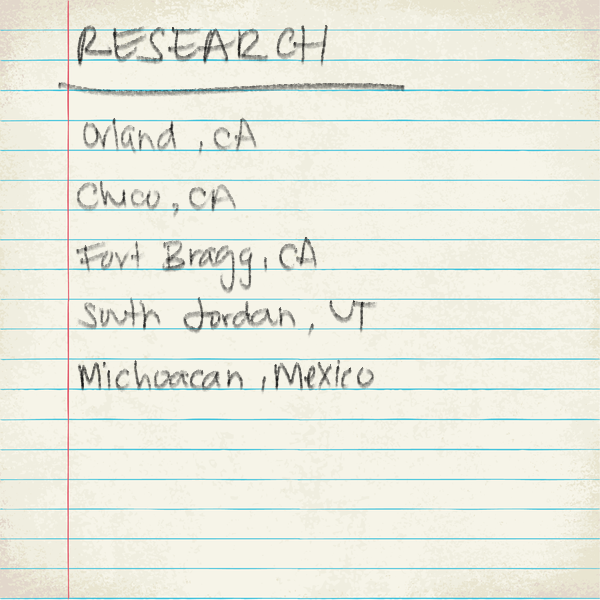 RESEARCH
Orland, CA
Chico, CA
Fort Bragg, CA
South Jordan, UT
Michoacan, Mexico